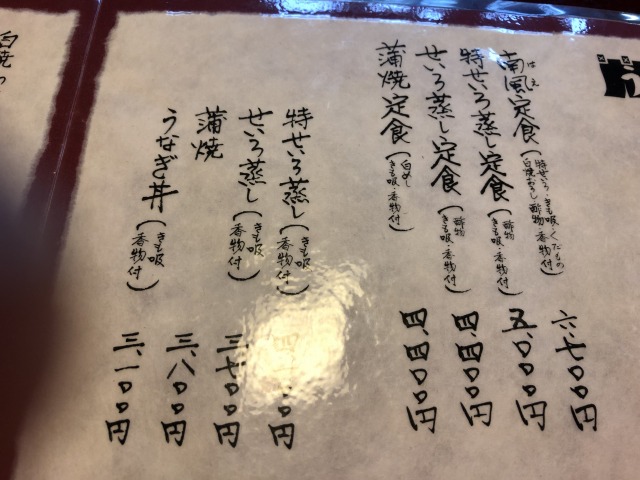 う
南風定食（特せいろ・きも吸・くだもの 白焼おろし・酢物・香物付） 六、七〇〇円
はえ
特せいろ蒸し定食（酢物 きも吸・香物付） 五、〇〇〇円
せいろ蒸し定食（酢物 きも吸・香物付） 四、四〇〇円
蒲焼定食（白めし きも吸・香物付） 四、四〇〇円
特せいろ蒸し（きも吸 香物付） 〇〇円
せいろ蒸し（きも吸 香物付） 三、七〇〇円
蒲焼 三、八〇〇円
うなぎ丼（きも吸 香物付） 三、一〇〇円
白焼